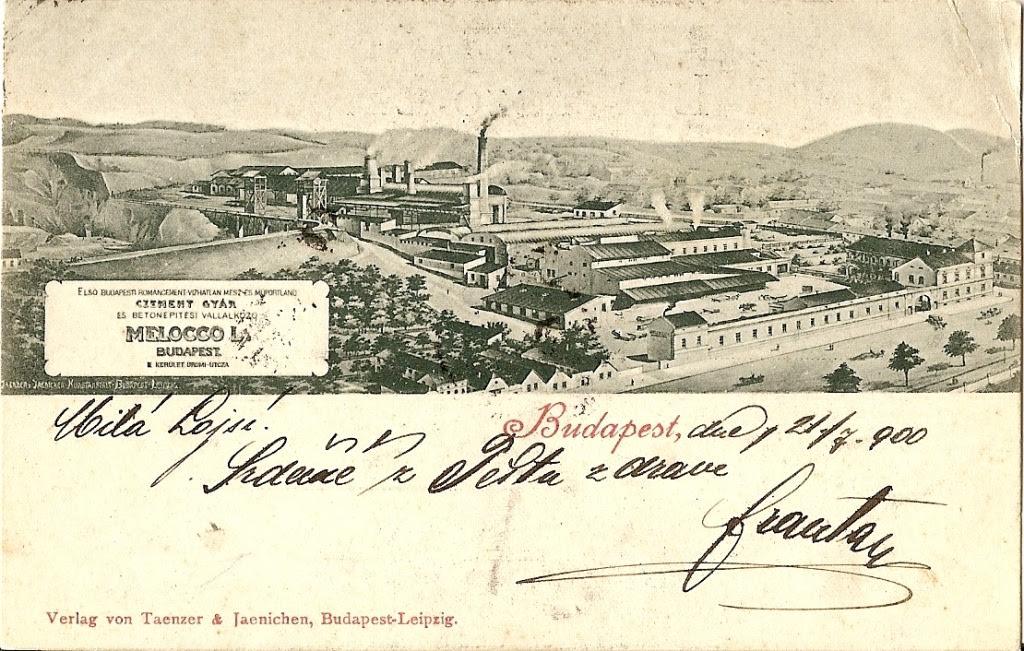 ELSŐ BUDAPESTI ROMANCEMENT-VIZHATLAN MESZ-ÉS MŰPORTLAND
CZEMENT GYÁR
ÉS BETONÉPITÉSI VÁLLALKOZÓ
MELOCCO L.
BUDAPEST.
II KERÜLET ÜRÖMI-UTCZA
TAENZER & JAENICHEN KUNSTANSTALT-BUDAPEST-LEIPZIG.
Milá Lojsi!
Budapest, dne 21/7. 900
Srdečně z Pešta zdraví
Frantan
Verlag von Taenzer & Jaenichen, Budapest-Leipzig.